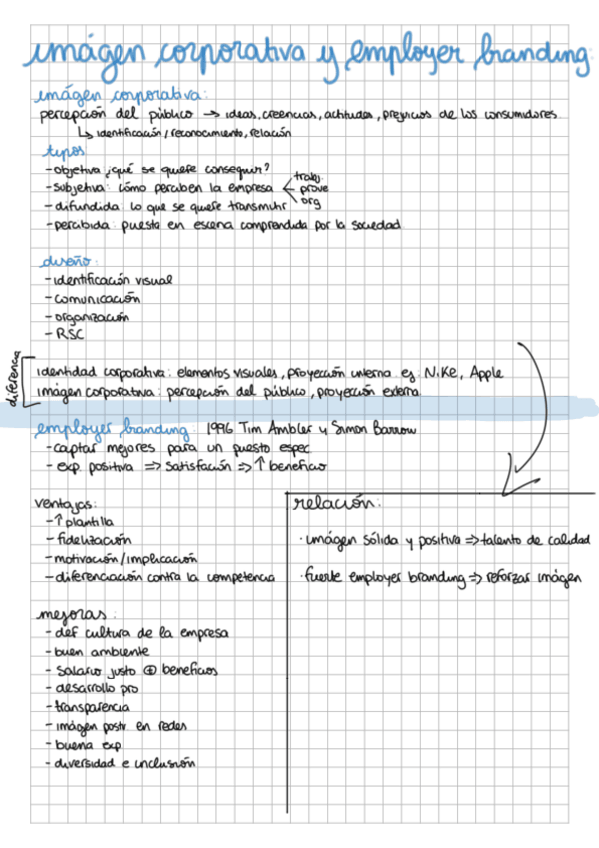 imágen corporativa y employer branding
imágen corporativa:
percepción del público → ideas, creencias, actitudes, prejuicios de los consumidores
↳ identificación / reconocimiento, relación
tipos
- objetiva ¿qué se quiere conseguir?
- subjetiva: cómo perciben la empresa
trabj
prove
org
- difundida: lo que se quiere transmitir
- percibida: puesta en escena comprendida por la sociedad
diseño:
- identificación visual
- comunicación
- organización
- RSC
diferencia
identidad corporativa: elementos visuales, proyección interna ej: Nike, Apple
imágen corporativa: percepción del público, proyección externa
employer branding: 1996 Tim Ambler y Simon Barrow
- captar mejores para un puesto espec
- exp positiva => satisfación => ↑ beneficio
ventajas:
- ↑ plantilla
- fidelización
- motivación / implicación
- diferenciación contra la competencia
relación:
· imágen sólida y positiva => talento de calidad
· fuerte employer branding => reforzar imágen
mejoras:
- def cultura de la empresa
- buen ambiente
- salario justo ⊕ beneficios
- desarrollo pro
- transparencia
- imágen postv en redes
- buena exp
- diversidad e inclusión